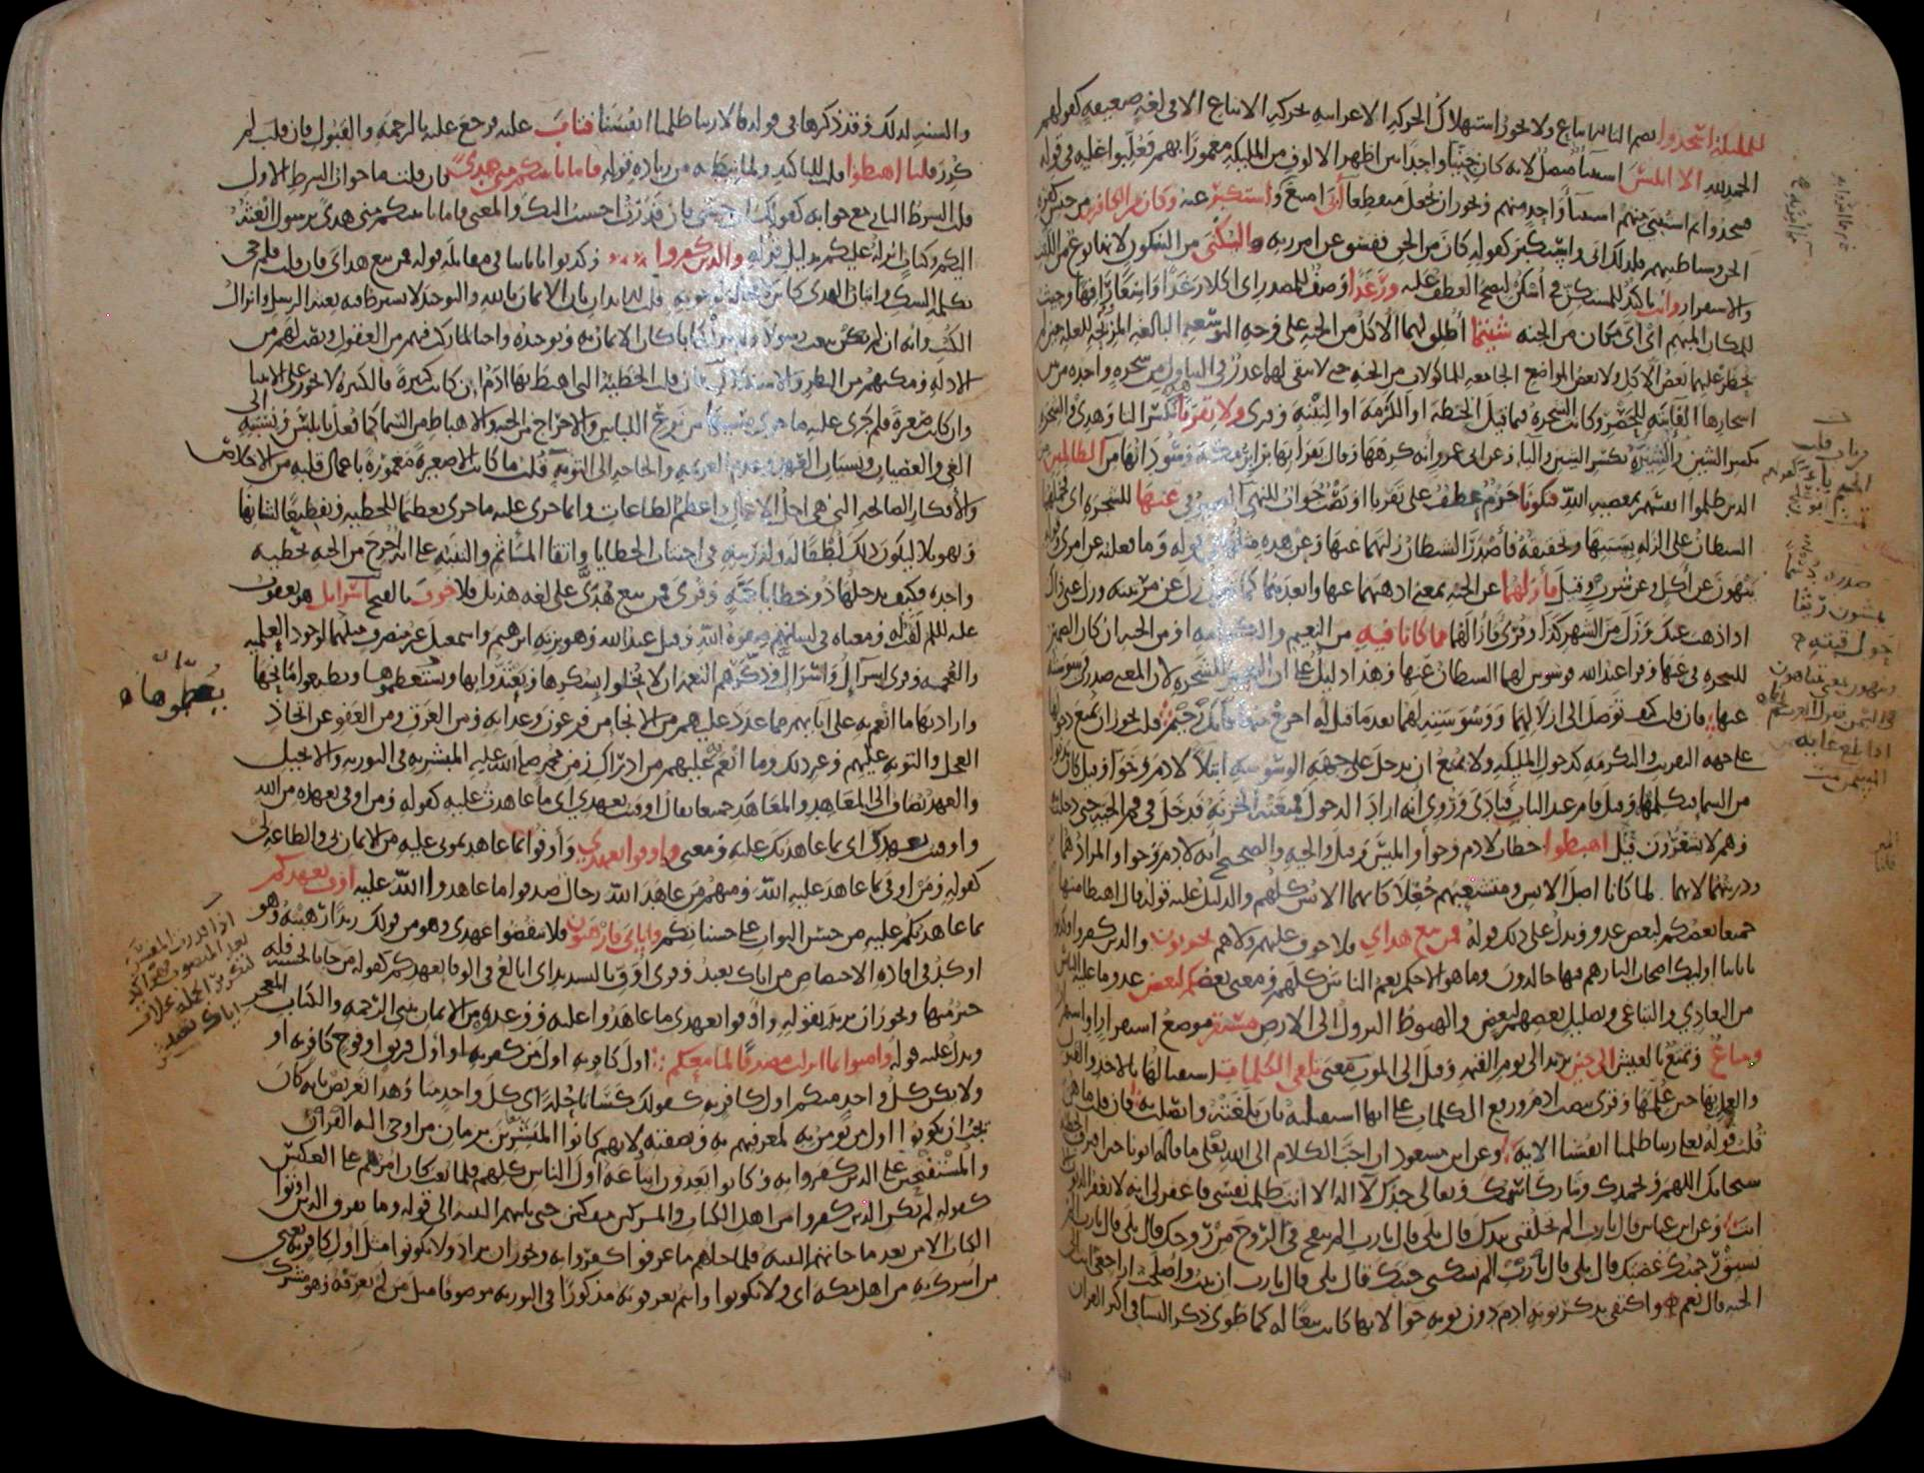 للملائكة اسجدوا بضم التاء للاتباع ولا يجوز استهلاك الحركة الاعرابية بحركة الاتباع الا في لغة ضعيفة كقولهم
الحمد لله الا ابليس استثناء متصل لانه كان جنيا واحدا بين اظهر الالوف من الملائكة مغمورا بهم فغلبوا عليه في قوله
فسجدوا ثم استثنى منهم استثناء واحد منهم ويجوز ان يجعل منقطعا أبى امتنع واستكبر عنه وكان من الكافرين من جنس كفرة
الجن وشياطينهم فلذلك ابى واستكبر كقوله كان من الجن ففسق عن امر ربه والسكنى من السكون لانها نوع من اللبث
والاستقرار وانت تاكيد للمستكن في اسكن ليصح العطف عليه ورغدا وصف للمصدر اي اكلا رغدا واسعا رافها وحيث
للمكان المبهم اي اي مكان من الجنة شئتما أطلق لهما الاكل من الجنة على وجه التوسعة البالغة المزيحة للعلة حين لم
يحظر عليهما بعض الاكل ولا بعض المواضع الجامعة للماكولات من الجنة حتى لا يبقى لهما عذر في التناول من شجرة واحدة من بين
اشجارها الفائتة للحصر وكانت الشجرة فيما قيل الحنطة او الكرمة او التينة وقرئ ولا تقربا بكسر التا وهذي والشجرة
بكسر الشين والشيرة بكسر الشين واليا وعن ابي عمرو انه كرهها وقال يقرأ بها برابر مكة وسودانها من الظالمين من
الذين ظلموا انفسهم بمعصية الله فتكونا جزم عطف على تقربا او نصب جواب للنهي الضمير في عنها للشجرة اي فحملهما
الشيطان على الزلة بسببها وتحقيقه فأصدر الشيطان زلتهما عنها وعن هذه مثلها في قوله وما فعلته عن امري وقوله
ينهون عن أكل وعن شرب وقيل فأزلهما عن الجنة بمعنى اذهبهما عنها وابعدهما كما تقول زل عن مرتبته وزل عني ذاك
اذا ذهب عنك وزل من الشهر كذا وقرئ فأزالهما مما كانا فيه من النعيم والكرامة او من الجنة ان كان الضمير
للشجرة في عنها وقرا عبد الله فوسوس لهما الشيطان عنها وهذا دليل على ان الضمير للشجرة لان المعنى صدرت وسوسته
عنها فان قلت كيف توصل الى ازلالهما ووسوسته لهما بعد ما قيل له اخرج منها فانك رجيم قلت يجوز ان يمنع دخولها
على جهة التقريب والتكرمة كدخول الملائكة ولا يمنع ان يدخل على جهة الوسوسة ابتلاء لادم وحوا وقيل كان يدنو
من السما فيكلمهما وقيل قام عند الباب فنادى وروي انه اراد الدخول فمنعته الخزنة فدخل في فم الحية حتى دخلت به
وهم لا يشعرون قيل اهبطوا خطاب لادم وحوا وابليس وقيل والحية والصحيح انه لادم وحوا والمراد هما
وذريتهما لانهما لما كانا اصل الانس ومتشعبهم جعلا كانهما الانس كلهم والدليل عليه قوله قال اهبطا منها
جميعا بعضكم لبعض عدو ويدل على ذلك قوله فمن تبع هداي فلا خوف عليهم ولا هم يحزنون والذين كفروا وكذبوا
باياتنا اوليك اصحاب النار هم فيها خالدون وما هو الا حكم يعم الناس كلهم ومعنى بعضكم لبعض عدو ما عليه الناس
من التعادي والتباغي وتضليل بعضهم لبعض والهبوط النزول الى الارض مستقر موضع استقرار او استقرار
ومتاع وتمتع بالعيش الى حين يريد الى يوم القيمة وقيل الى الموت معنى تلقي الكلمات استقبالها بالاخذ والقبول
والعمل بها حين علمها وقرئ بنصب ادم ورفع الكلمات على انها استقبلته بان بلغته واتصلت به فان قلت ما هن
قلت قوله تعالى ربنا ظلمنا انفسنا الاية وعن ابن مسعود ان احب الكلام الى الله تعالى ما قاله ابونا حين اقترف الخطيئة
سبحانك اللهم وبحمدك وتبارك اسمك وتعالى جدك لا اله الا انت ظلمت نفسي فاغفر لي انه لا يغفر الذنوب الا
انت وعن ابن عباس قال يا رب الم تخلقني بيدك قال بلى قال يا رب الم تنفخ في الروح من روحك قال بلى قال يا رب الم
تسبق رحمتك غضبك قال بلى قال يا رب الم تسكني جنتك قال بلى قال يا رب ان تبت واصلحت اراجعي انت الى
الجنة قال نعم واكتفي بذكر توبة ادم دون توبة حوا لانها كانت تبعا له كما طوي ذكر النسا في اكثر القران
والسنة لذلك وقد ذكرها في قوله قالا ربنا ظلمنا انفسنا فتاب عليه فرجع عليه بالرحمة والقبول فان قلت لم
كرر قلنا اهبطوا قلت للتاكيد ولما نيط به من زيادة قوله فاما ياتينكم مني هدى فان قلت ما جواب الشرط الاول
قلت الشرط الثاني مع جوابه كقولك ان جئتني فان قدرت احسنت اليك والمعنى فاما ياتينكم مني هدى برسول ابعثه
اليكم وكتاب انزله عليكم بدليل قوله والذين كفروا وكذبوا باياتنا في مقابلة قوله فمن تبع هداي فان قلت فلم جي
بكلمة الشك واتيان الهدى كائن لا محالة لوجوبه قلت للايذان بان الايمان بالله والتوحيد لا يشترط فيه بعثة الرسل وانزال
الكتب وانه ان لم يكن يبعث رسولا ولم ينزل كتابا كان الايمان به وتوحيده واجبا لما ركب فيهم من العقول ونصب لهم من
الادلة ومكنهم من النظر والاستدلال فان قلت الخطيئة التي اهبط بها ادم ان كانت كبيرة فالكبيرة لا تجوز على الانبيا
وان كانت صغيرة فلم جرى عليه ما جرى بسببها من نزع اللباس والاخراج من الجنة والاهباط من السما كما فعل بابليس ونسبته الى
الغي والعصيان ونسيان العهد وعدم العزيمة والحاجة الى التوبة قلت ما كانت الا صغيرة مغمورة باعمال قلبه من الاخلاص
والافكار الصالحة التي هي اجل الاعمال واعظم الطاعات وانما جرى عليه ما جرى تعظيما للخطيئة وتفظيعا لشانها
وتهويلا ليكون ذلك لطفا له ولذريته في اجتناب الخطايا واتقا المآثم والتنبيه على انه اخرج من الجنة بخطيئة
واحدة فكيف يدخلها ذو خطايا جمة وقرئ فمن تبع هدي على لغة هذيل فلا خوف بالفتح اسرائيل هو يعقوب
عليه السلم لقب له ومعناه في لسانهم صفوة الله وقيل عبد الله وهو بزنة ابرهيم واسمعيل غير منصرف مثلهما لوجود العلمية
والعجمة وقرئ اسرائل واسرائل وذكرهم النعمة ان لا يخلوا بشكرها ويعتدوا بها ويستعظموها ويطيعوا مانحها
واراد بها ما انعم به على ابائهم مما عدد عليهم من الانجا من فرعون وعذابه ومن الغرق ومن العفو عن اتخاذ
العجل والتوبة عليهم وغير ذلك وما انعم به عليهم من ادراك زمن محمد صلى الله عليه المبشر به في التورية والانجيل
والعهد يضاف الى المعاهد والمعاهد جميعا يقال اوفيت بعهدي اي ما عاهدت عليه كقوله ومن اوفى بعهده من الله
واوفيت بعهدك اي بما عاهدتك عليه ومعنى واوفوا بعهدي وأوفوا بما عاهدتموني عليه من الايمان بي والطاعة لي
كقوله ومن اوفى بما عاهد عليه الله ومنهم من عاهد الله رجال صدقوا ما عاهدوا الله عليه اوف بعهدكم
بما عاهدتكم عليه من حسن الثواب على حسناتكم واياي فارهبون فلا تنقضوا عهدي وهو من قولك زيدا رهبته وهو
اوكد في افادة الاختصاص من اياك نعبد وقرئ اوف بالتشديد اي ابالغ في الوفا بعهدكم كقوله من جا بالحسنة فله
خير منها ويجوز ان يريد بقوله واوفوا بعهدي ما عاهدوا عليه ووعدوه من الايمان بنبي الرحمة والكتاب المعجز
ويدل عليه قوله وامنوا بما انزلت مصدقا لما معكم اول كافر به اول من كفر به او اول فريق او فوج كافر به او
ولا يكن كل واحد منكم اول كافر به كقولك كسانا حلة اي كل واحد منا وهذا تعريض بانه كان
يجب ان يكونوا اول من يومن به لمعرفتهم به وبصفته ولانهم كانوا المبشرين بزمان من اوحي اليه القران
والمستفتحين على الذين كفروا به وكانوا يعدون اتباعه اول الناس كلهم فلما بعث كان امرهم على العكس
كقوله لم يكن الذين كفروا من اهل الكتاب والمشركين منفكين حتى تاتيهم البينة الى قوله وما تفرق الذين اوتوا
الكتاب الا من بعد ما جاتهم البينة فلما جاهم ما عرفوا كفروا به ويجوز ان يراد ولا تكونوا مثل اول كافر به يعني
من اشرك به من اهل مكة اي ولا تكونوا وانتم تعرفونه مذكورا في التورية موصوفا مثل من لم يعرفه وهو مشرك